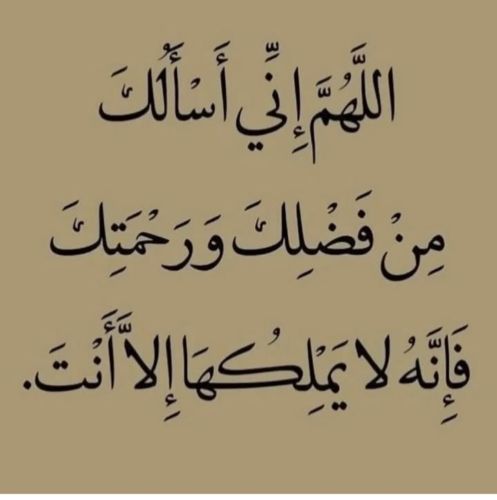 اللَّهُمَّ إِنِّي أَسْأَلُكَ
مِنْ فَضْلِكَ وَرَحْمَتِكَ
فَإِنَّهُ لا يَمْلِكُهَا إِلاَّ أَنْتَ.